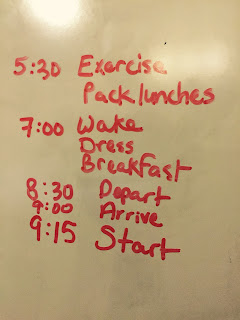 5:30 Exercise
Pack lunches
7:00 Wake
Dress
Breakfast
8:30 Depart
9:00 Arrive
9:15 Start